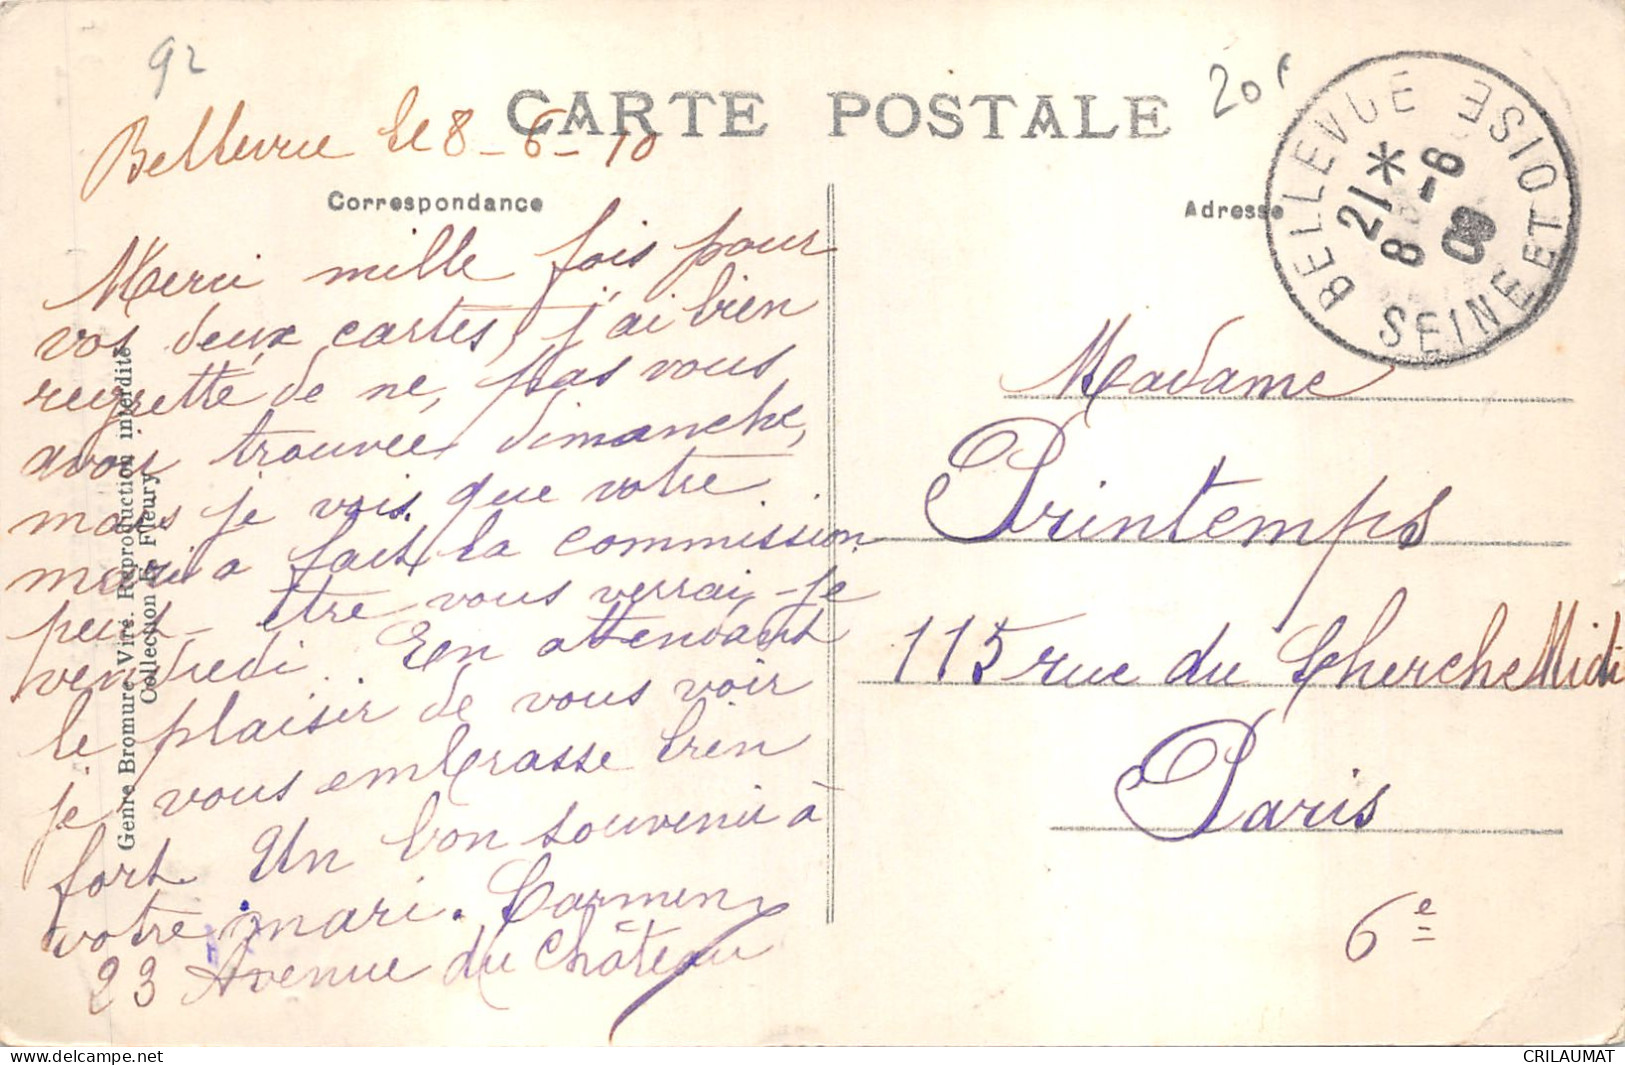 92
20f
CARTE POSTALE
Bellevue le 8-6-10
Correspondance
Adresse
BELLEVUE
SEINE ET OISE
21 *
8 8-6
Merci mille fois pour
vos deux cartes, j'ai bien
regretté de ne, pas vous
avoir trouvée dimanche,
mais je vois que votre
mari a fait la commission
peut-être vous verrai-je
vendredi. En attendant
le plaisir de vous voir
je vous embrasse bien
fort. Un bon souvenir à
votre mari. Carmen
23 Avenue du Château
Madame
Printemps
115 rue du Cherche Midi
Paris
6e
Genre Bromure-Viré. Reproduction interdite
Collection E. Fleury
CRILAUMAT